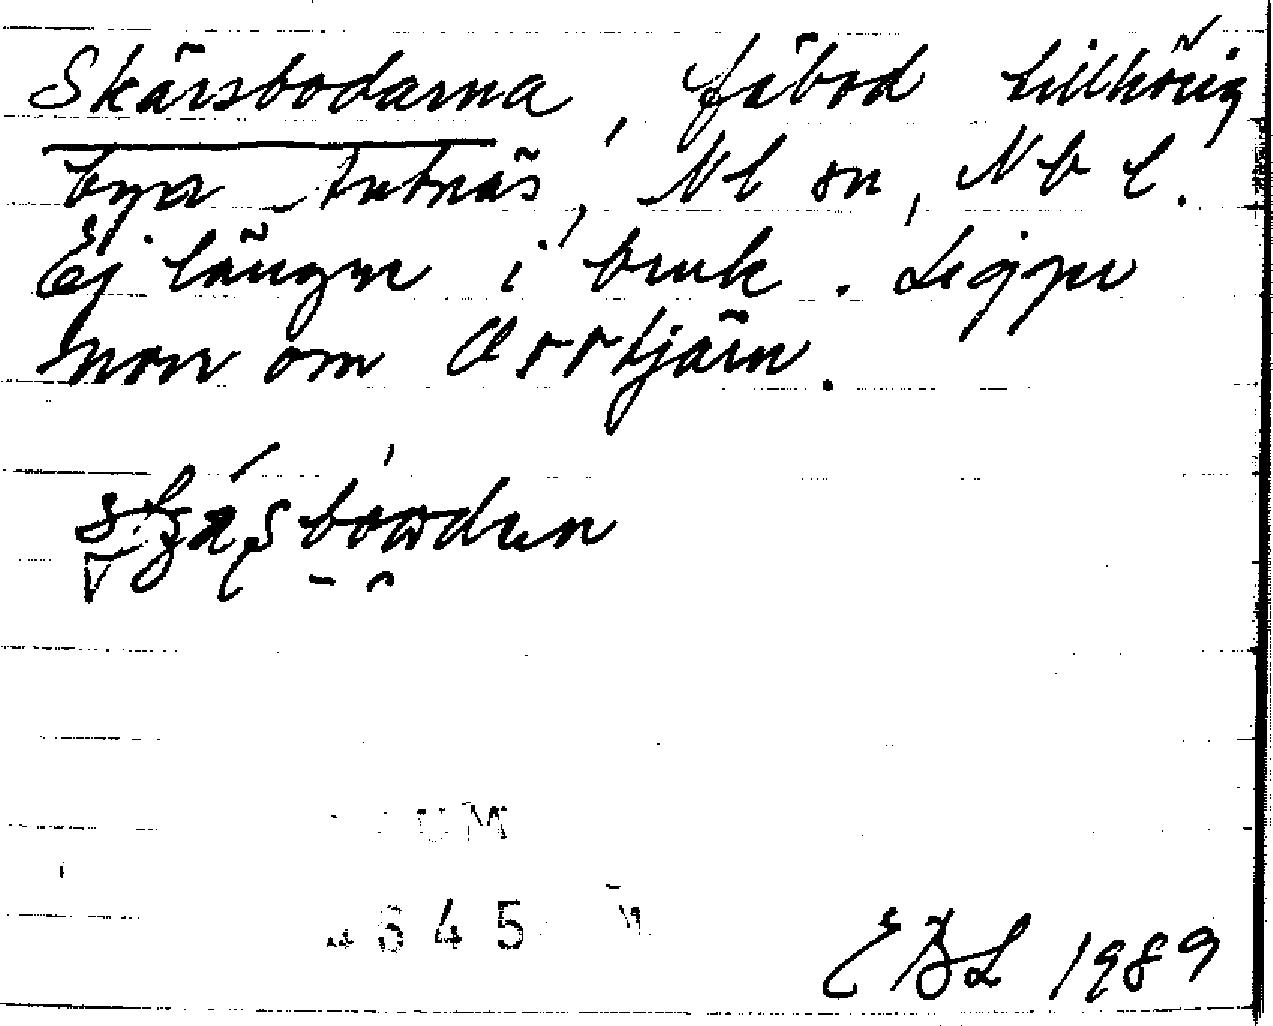 Skärsbodarna, fäbod tillhörig
byn Antnäs, Nl sn, Nb l.
Ej längre i bruk. Ligger
norr om Orrtjärn.
UM
645
EBL 1989